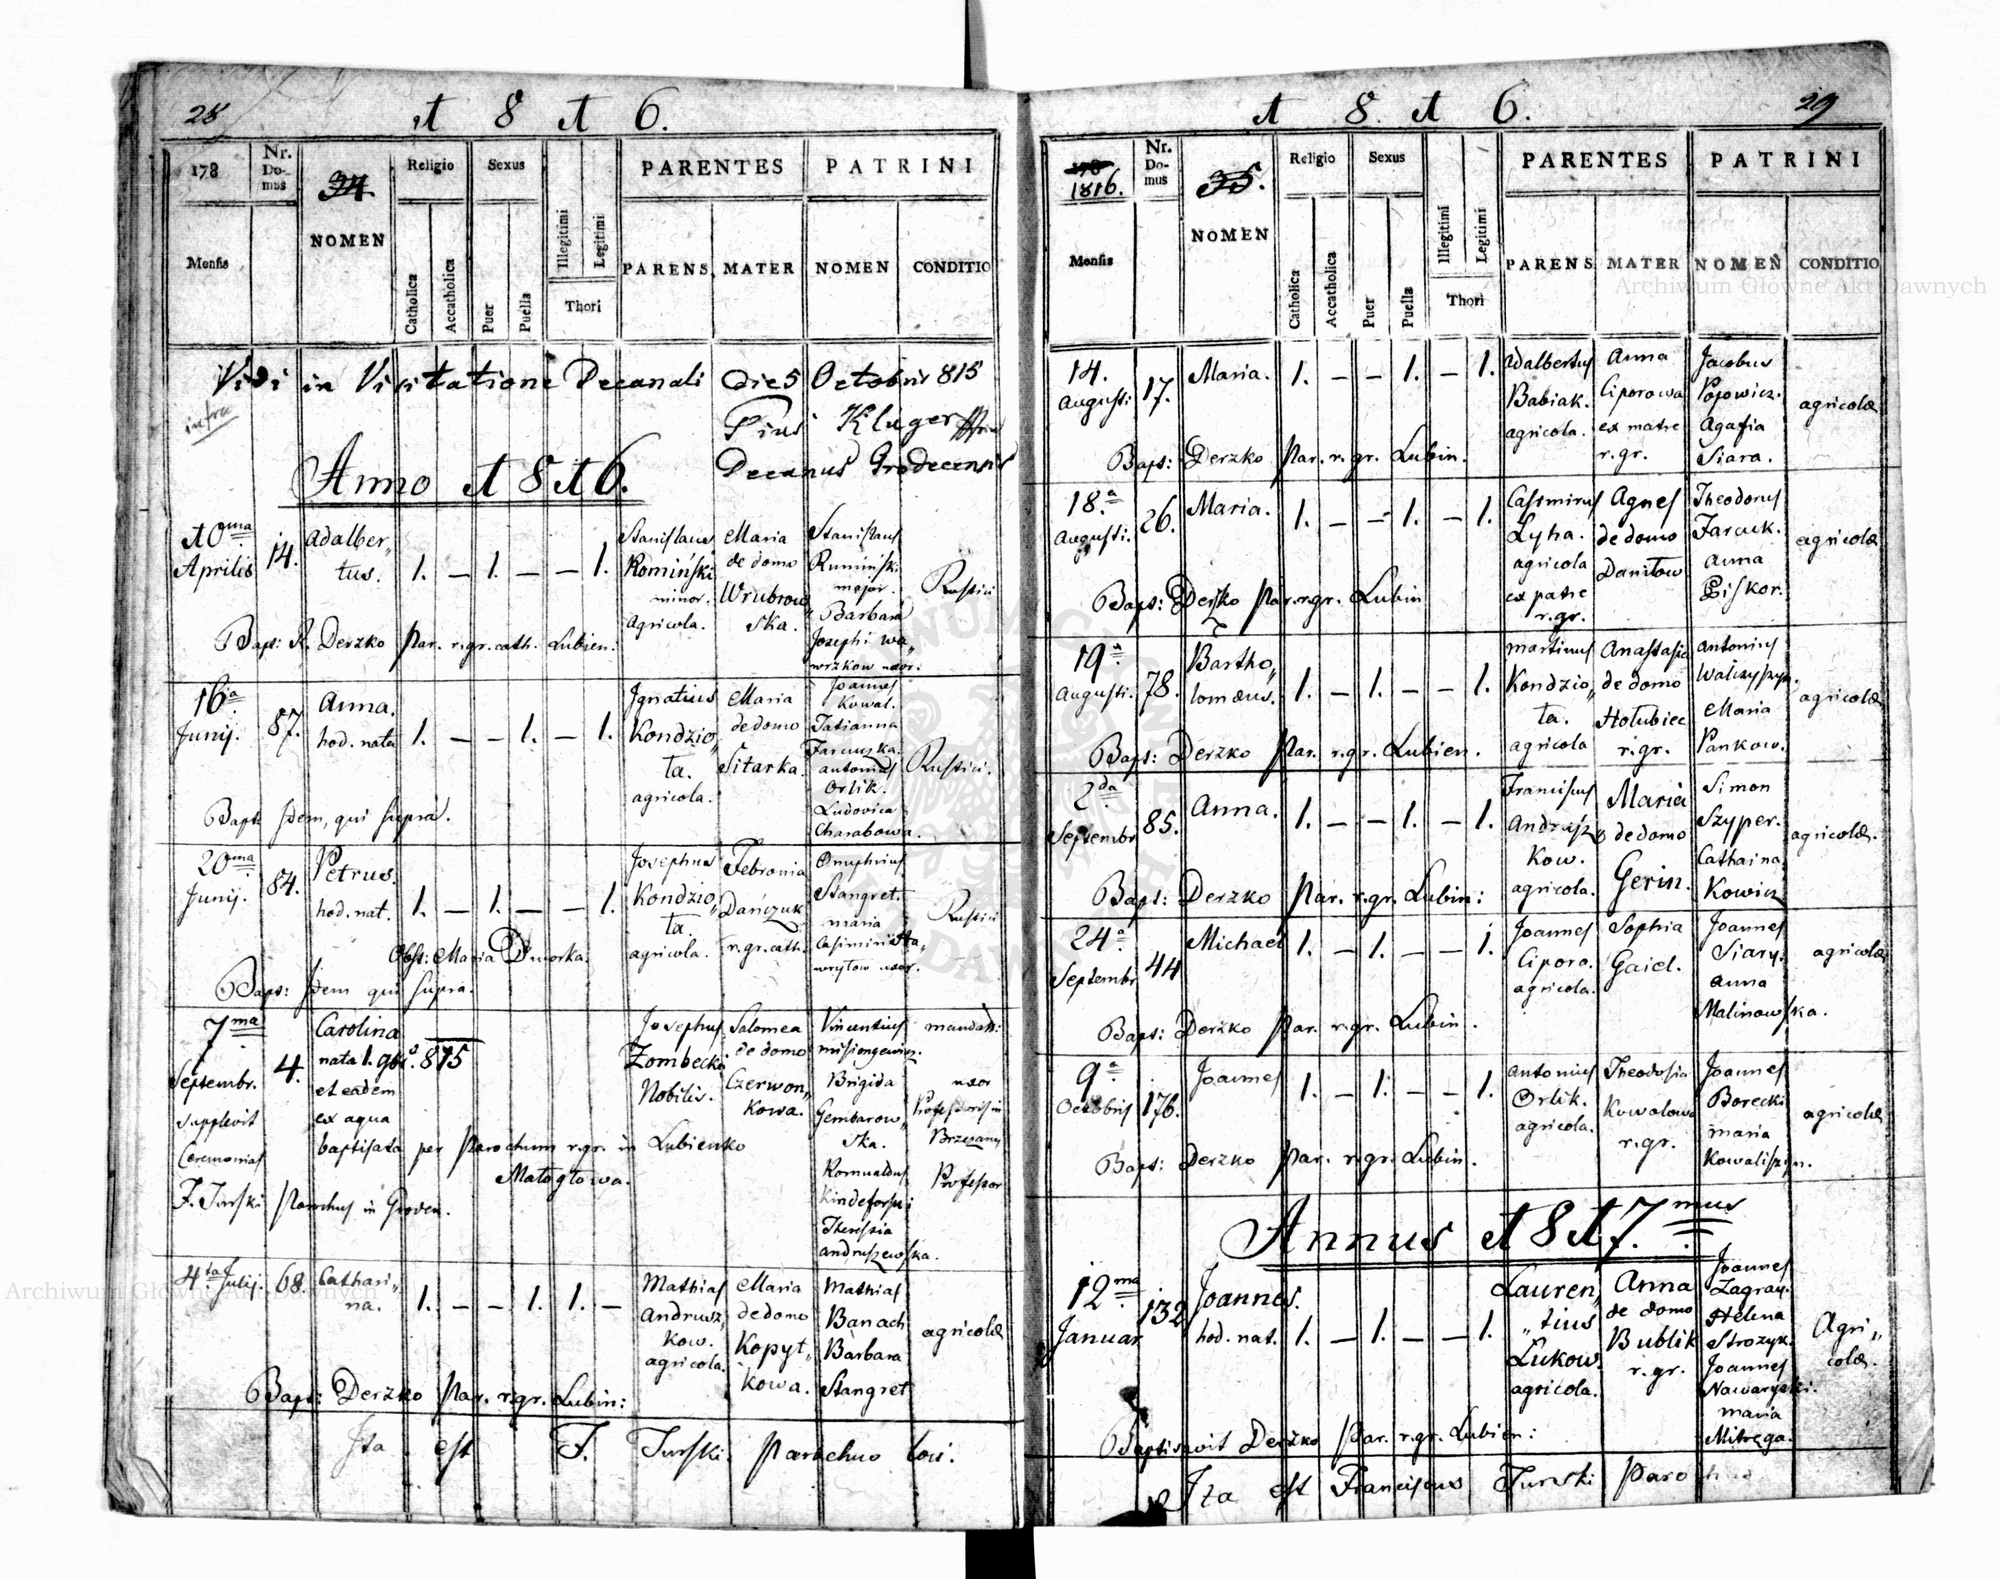 28
1 8 1 6.
178
Nr. Domus
34.
Religio
Sexus
PARENTES
PATRINI
Mensis
NOMEN
Catholica
Accatholica
Puer
Puella
Illegitimi
Legitimi
Thori
PARENS
MATER
NOMEN
CONDITIO
Vidi in Visitatione Decanali die 5 Octobris 815
infra
Pius Kluger
Decanus Grodecensis
Anno 1816.
10ma Aprilis
14.
Adalber„
tus.
1. — 1. — — 1.
Stanislaus
Romiński
minor.
agricola.
Maria
de domo
Wrubrow„
ska.
Stanislaus
Rumiński
major.
Barbara
Josephi wa„
wrzkow uxor.
Rustici
Bapt: R. Derzko Par. r. gr. cath. Lubien:
16ta
Junij.
87.
Anna.
hod. nata
1. — — 1. — 1.
Ignatius
Kondzio„
ta.
agricola.
Maria
de domo
Sitarka.
Joannes
Kowal.
Tatianna
antonius
Orlik.
Ludovica
Charabowa.
Rustici.
Bapt: Idem, qui supra.
20ma
Junij.
84.
Petrus.
hod. nat.
1. — 1. — — 1.
Josephus
Kondzio„
ta.
agricola.
Febronia
Dańczuk
r. gr. cath.
Onuphrius
Stangret.
maria
Rustici
Obst: Maria Dworka.
Bapt: Idem qui supra.
7ma
Septembr.
supplevit
Ceremonias
F. Turski Parochus in Groden.
4.
Carolina
nata 1. 9bris 815
et eadem
ex aqua
baptisata per Parochum r. gr. in Lubienko
Matogłowa.
Josephus
Zombecki
Nobilis.
Salomea
de domo
Czerwon„
kowa.
Vincentius
Brigida
Gembarow„
ska.
Romualdus
Theresia
andruszewska.
mandat:
uxor
Professoris in
Brzezany
Professor
4ta Julij.
68.
Cathari„
na.
1. — — 1. 1. —
Mathias
Andrusz„
kow.
agricola.
Maria
de domo
Kopyt„
kowa.
Mathias
Banach
Barbara
Stangret
agricolæ
Bapt: Derzko Par. r. gr. Lubin:
Ita est F. Turski. Parochus loci.
29
1 8. 1 6.
178
1816.
Nr. Domus
35.
Religio
Sexus
PARENTES
PATRINI
Mensis
NOMEN
Catholica
Accatholica
Puer
Puella
Illegitimi
Legitimi
Thori
PARENS
MATER
NOMEN
CONDITIO
14.
Augusti:
17.
Maria.
1. — — 1. — 1.
Adalbertus
Babiak.
agricola.
Anna
Ciporowa
ex matre
r. gr.
Jacobus
Popowicz.
Agafia
Siara.
agricolæ
Bapt: Derzko Par. r. gr. Lubin.
18.a
Augusti.
26.
Maria.
1. — — 1. — 1.
Casimirus
Lyha.
agricola
ex patre
r. gr.
Agnes
de domo
Daniłow
Theodorus
Farcuk.
Anna
Piskor.
agricolæ
Bapt: Derzko Par. r. gr. Lubin
19a
Augusti.
78.
Bartho„
lomæus.
1. — 1. — — 1.
Martinus
Kondzio„
ta.
agricola
Anastasia
de domo
Hołubiec
r. gr.
Antonius
Walczyszyn.
Maria
Pankow.
agricolæ
Bapt: Derzko Par. r. gr. Lubien.
2da
Septembr
85.
Anna.
1. — — 1. — 1.
Franciscus
Andrusz
kow.
agricola.
Maria
de domo
Gerin.
Simon
Szyper.
Catharina
Kowicz
agricolæ.
Bapt: Derzko Par. r. gr. Lubin:
24a
Septembr
44
Michael
1. — 1. — — 1.
Joannes
Cipora.
agricola.
Sophia
Gaiel.
Joannes
Siary.
Anna
Malinowska.
agricolæ
Bapt: Derzko Par. r. gr. Lubin.
9a
Octobris
176.
Joannes
1. — 1. — — 1.
Antonius
Orlik.
agricola.
Theodosia
Kowalowa
r. gr.
Joannes
Borecki
maria
Kowaliszyn.
agricolæ
Bapt: Derzko Par. r. gr. Lubin.
Annus 1817.mus
12ma
Januar
132
Joannes.
hod. nat.
1. — 1. — — 1.
Lauren„
„tius
Lukow.
agricola.
Anna
de domo
Bublik
r. gr.
Joannes
Zagray.
Helena
Strozyk.
Joannes
Nawaryski.
maria
Mitręga.
Agri„
colæ.
Baptisavit Derzko Par. r. gr. Lubien:
Ita est Franciscus Turski Parochus
Archiwum Główne Akt Dawnych
Archiwum Główne Akt Dawnych